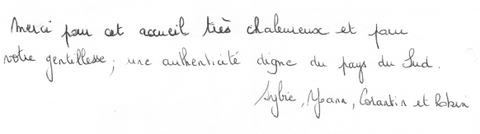 Merci pour cet accueil très chaleureux et pour
votre gentillesse ; une authenticité digne du pays du Sud.
Sylvie, Yoann, Corantin et Robin